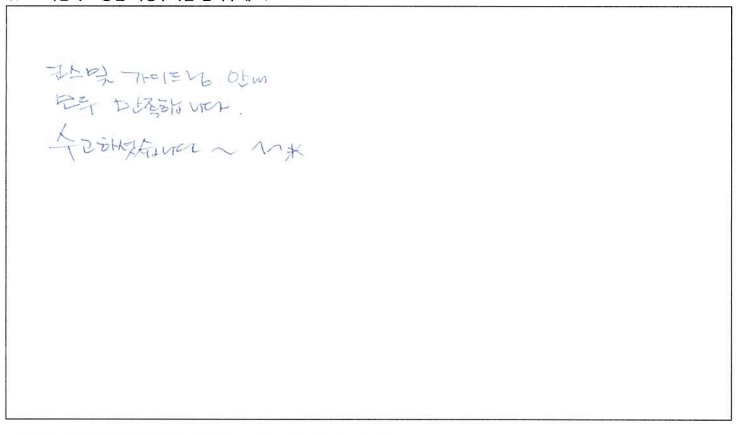 코스및 가이드님 안내
모두 만족합니다.
수고하셨습니다 ~ ^^*